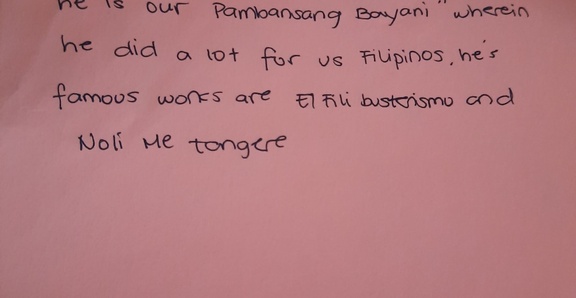 he is our Pambansang Bayani" wherein
he did a lot for us Filipinos, he's
famous works are El Fili busterismo and
Noli Me tangere